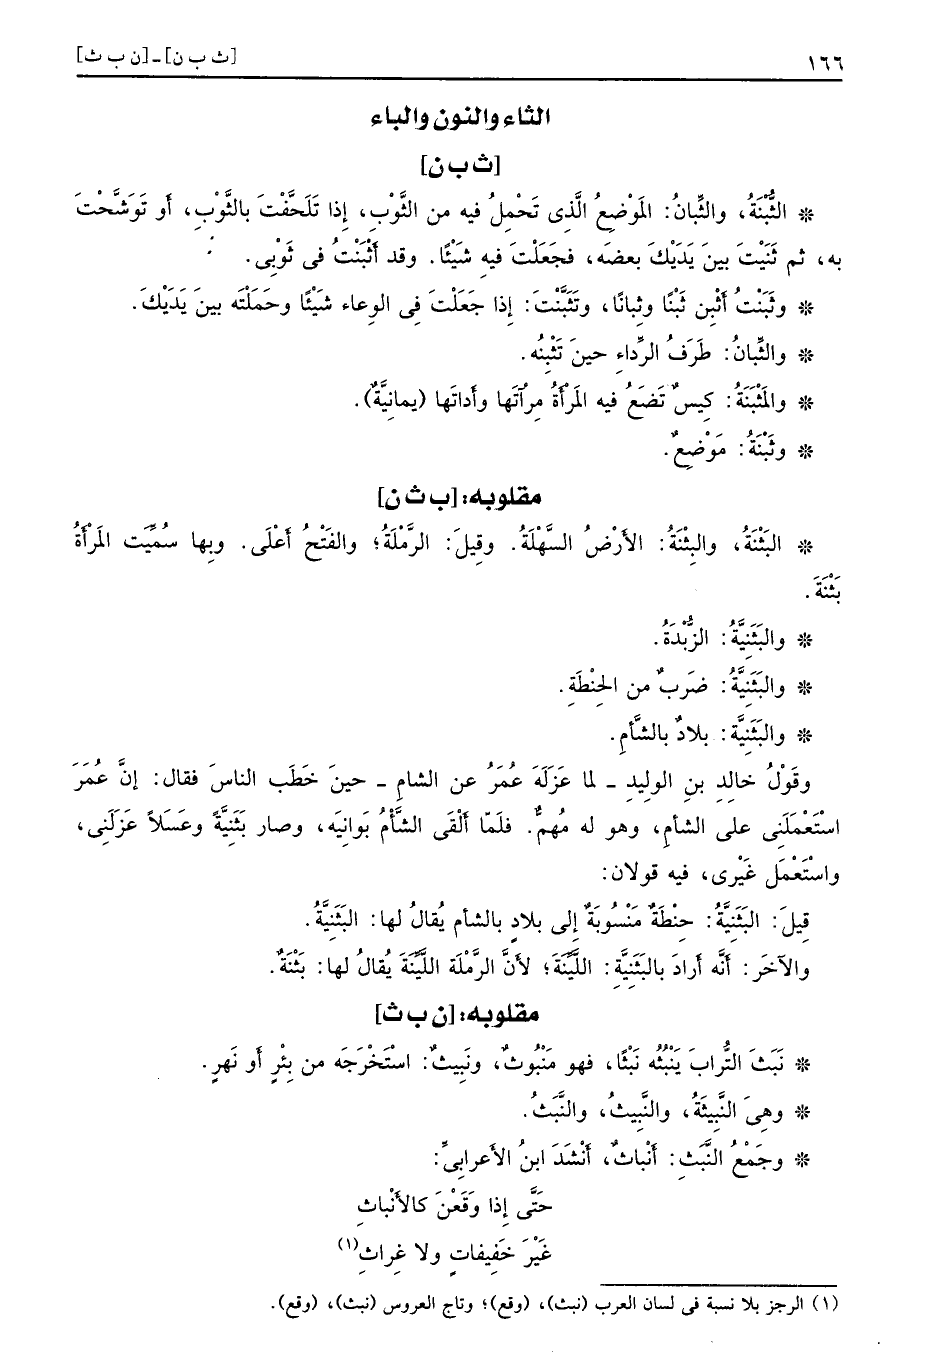 ١٦٦
[ث ب ن] ـ [ن ب ث]
الثاء والنون والباء
[ث ب ن]
* الثُّبْنَةُ، والثِّبانُ: المَوْضِعُ الَّذِى تَحْمِلُ فيه من الثَّوْبِ، إذا تَلَحَّفْتَ بالثَّوْبِ، أو تَوَشَّحْتَ
به، ثم ثَنَيْتَ بينَ يَدَيْكَ بعضَه، فجَعَلْتَ فيه شَيْئًا. وقد أَثْبَنْتُ فى ثَوْبِى.
* وثَبَنْتُ أثْبِن ثَبْنًا وثِبانًا، وتَثَبَّنْتَ: إذا جَعَلْتَ فِى الوِعاء شَيْئًا وحَمَلْتَه بينَ يَدَيْكَ.
* والثِّبانُ: طَرَفُ الرِّداءِ حينَ تَثْبِنُه.
* والمَثْبَنَةُ: كِيسٌ تَضَعُ فيه المَرْأَةُ مِرآتَها وأَداتَها (يمانِيَّةٌ).
* وثَبْنَةُ: مَوْضِعٌ.
مقلوبه: [ب ث ن]
* البَثْنَةُ، والبِثْنَةُ: الأَرْضُ السَّهْلَةُ. وقِيلَ: الرَّمْلَةُ؛ والفَتْحُ أَعْلَى. وبِها سُمِّيَت المَرْأَةُ
بَثْنَةَ.
* والبَثَنِيَّةُ: الزُّبْدَةُ.
* والبَثَنِيَّةُ: ضَربٌ من الحِنْطَةِ.
* والبَثَنِيَّة: بلادٌ بالشَّأمِ.
وقَوْلُ خالِدِ بنِ الوليدِ ـ لما عَزَلَه عُمَرُ عن الشامِ ـ حينَ خَطَب الناسَ فقال: إنَّ عُمَرَ
اسْتَعْمَلَنِى على الشأمِ، وهو له مُهِمٌّ. فلَمّا أَلْقَى الشَّأْمُ بَوانِيَه، وصار بَثَنِيَّةً وعَسَلاً عَزَلَنِى،
واسْتَعْمَل غَيْرِى، فيه قولان:
قِيلَ: البَثَنِيَّةُ: حِنْطَةٌ مَنْسُوبَةٌ إلى بلادٍ بالشأم يُقالُ لها: البَثَنِيَّةُ.
والآخَر: أنَّه أرادَ بالبَثَنِيَّةِ: اللَّيِّنَةَ؛ لأنَّ الرَّمْلَة اللَّيِّنَةَ يُقالُ لها: بَثْنَةٌ.
مقلوبه: [ن ب ث]
* نَبَثَ التُّرابَ يَنْبُثُه نَبْثًا، فهو مَنْبُوثٌ، ونَبِيثٌ: استَخْرَجَه من بِئْرٍ أو نَهرٍ.
* وهِىَ النَّبِيثَةُ، والنَّبِيثُ، والنَّبَثُ.
* وجَمْعُ النَّبَثِ: أنْباثٌ، أَنْشَدَ ابنُ الأعرابِىِّ:
حَتَّى إِذا وَقَعْنَ كالأَنْباثِ
غَيْرَ خَفِيفاتٍ ولا غِراثِ(١)
(١) الرجز بلا نسبة فى لسان العرب (نبث)، (وقع)؛ وتاج العروس (نبث)، (وقع).